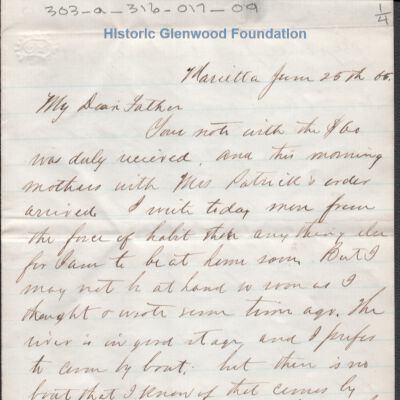 303-a-316-017-09
1/4
Historic Glenwood Foundation
Marietta June 25th 65.
My Dear Father
Your note with the $60
was duly recieved, and this morning
mothers with Mrs Patrick's order
arrived. I write today more from
the force of habit than any thing else
for I am to be at home soon. But I
may not be at hand so soon as I
thought & wrote some time ago. The
river is in good stage, and I prefer
to come by boat; but there is no
boat that I know of that comes by